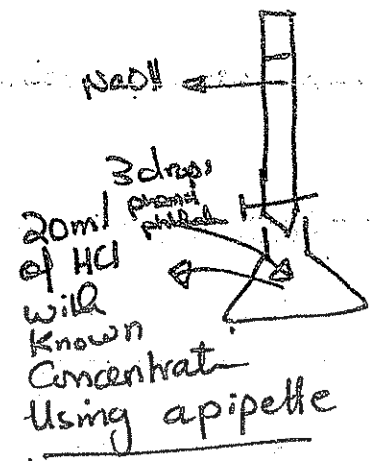 NaOH
3 drops
phenol
phthal
20ml
of HCl
with
Known
Concentrat
Using apipette